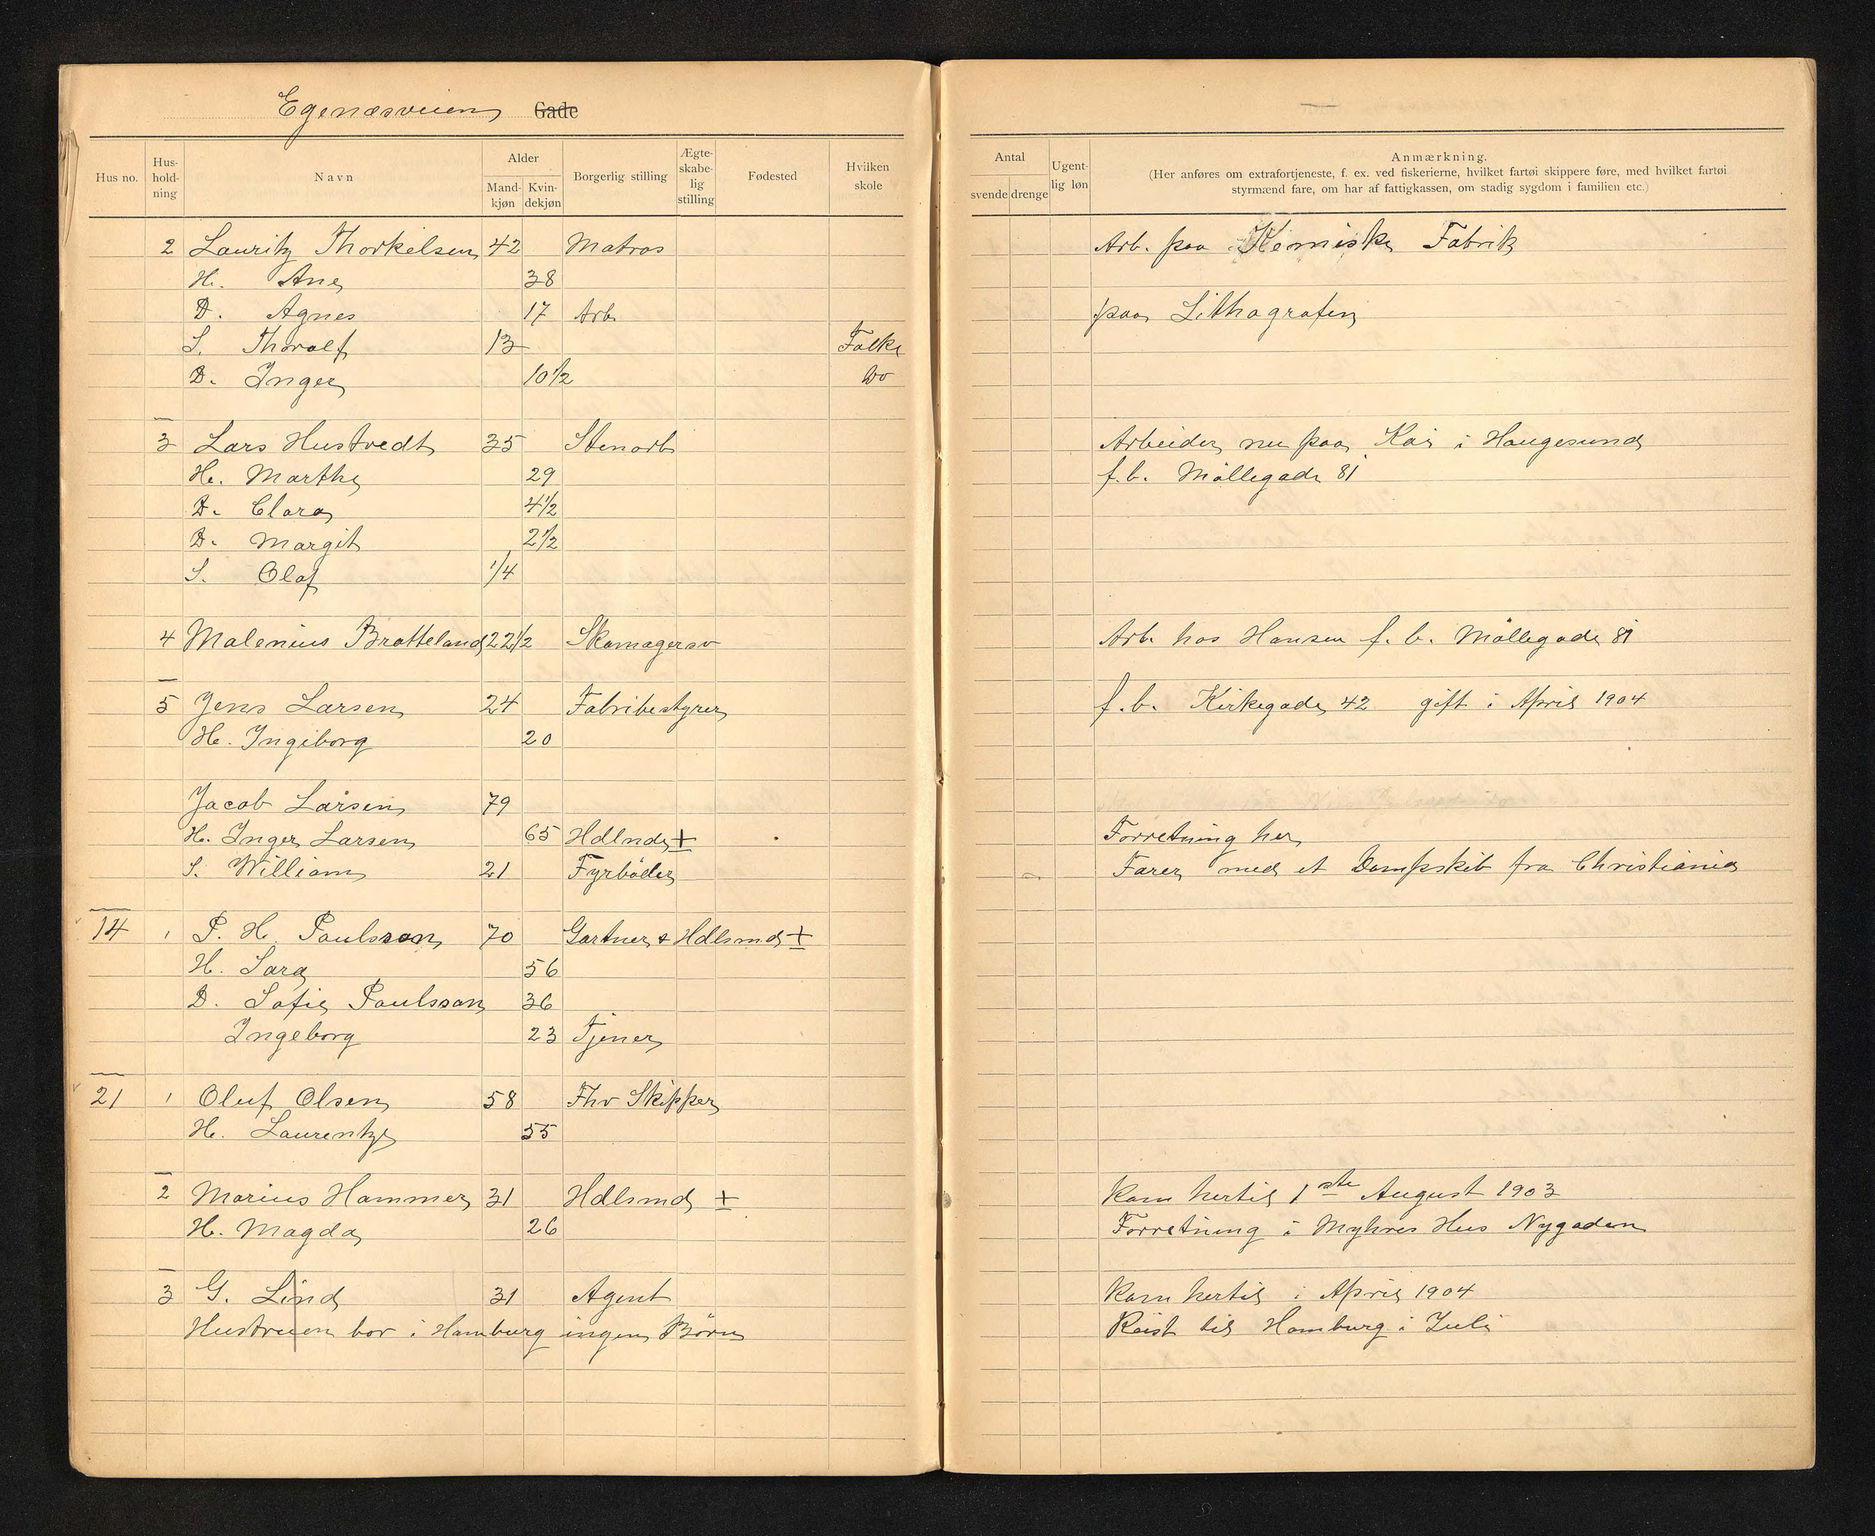 Egenæsveien Gade
Hus no. Hus-hold-ning Navn Alder Mand-kjøn Kvin-dekjøn Borgerlig stilling Ægte-skabe-lig stilling Fødested Hvilken skole
Antal svende drenge Ugent-lig løn Anmærkning.
(Her anføres om extrafortjeneste, f. ex. ved fiskerierne, hvilket fartøi skippere føre, med hvilket fartøi
styrmænd fare, om har af fattigkassen, om stadig sygdom i familien etc.)
2 Lauritz Thorkelsen 42 Matros Arb. paa Kemiske Fabrik
H. Ane 38
D. Agnes 17 Arb. paa Lithografien
S. Thoralf 13 Folke
D. Inger 10 1/2 Do
3 Lars Hustvedt 35 Stenarb Arbeider nu paa Kai i Haugesund
H. Marthe 29 f.b. Møllegade 81
D. Clara 4 1/2
D. Margit 2 1/2
S. Olaf 1/4
4 Malenius Bratteland 22 1/2 Skomagersv Arb. hos Hansen f.b. Møllegade 81
5 Jens Larsen 24 Fabribestyrer f.b. Kirkegade 42 gift i April 1904
H. Ingiborg 20
Jacob Larsen 79
H. Inger Larsen 65 Hdlnde + Forretning her
S. William 21 Fyrbøder Farer med et Dampskib fra Christiania
14 1 P. H. Paulsson 70 Gartner & Hdlsmd +
H. Sara 56
D. Sofie Paulsson 36
Ingeborg 23 Tjener
21 1 Oluf Olsen 58 Fhv Skipper
H. Laurentze 55
2 Marius Hammer 31 Hdlsmd + Kom hertil 1ste August 1903
H. Magda 26 Forretning i Myhres Hus Nygaden
3 G. Lind 31 Agent Kom hertil i April 1904
Hustruen bor i Hamburg ingen Børn Reist til Hamburg i Juli